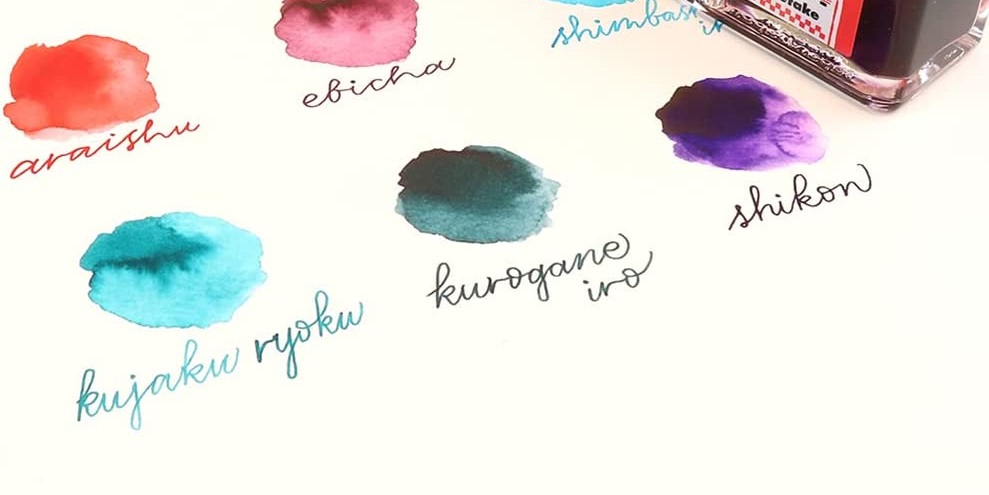 ebicha
araishu
shikon
kurogane
iro
kujaku ryoku